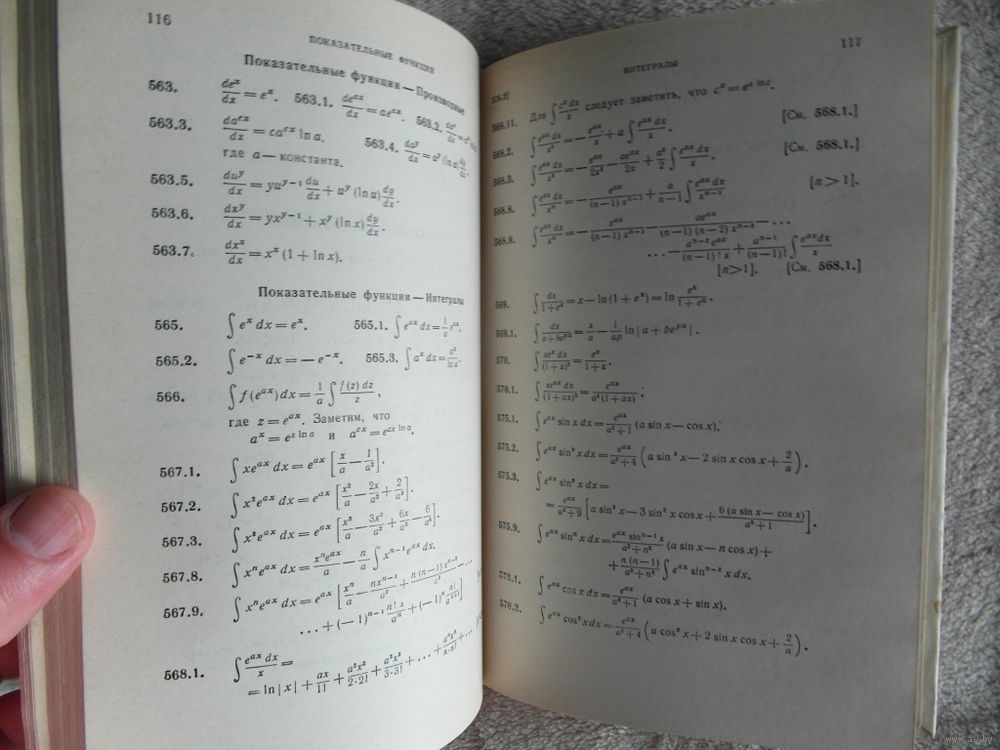 116
ПОКАЗАТЕЛЬНЫЕ ФУНКЦИИ
Показательные функции — Производные
563. de^x/dx = e^x. 563.1. de^{ax}/dx = ae^{ax}. 563.2.
563.3. da^{cx}/dx = ca^{cx} ln a. 563.4. da^y/dx = a^y (ln a) dy/dx.
где a — константа.
563.5. du^y/dx = yu^{y-1} du/dx + u^y (ln u) dy/dx.
563.6. dx^y/dx = yx^{y-1} + x^y (ln x) dy/dx.
563.7. dx^x/dx = x^x (1 + ln x).
Показательные функции — Интегралы
565. ∫ e^x dx = e^x. 565.1. ∫ e^{ax} dx = 1/a e^{ax}.
565.2. ∫ e^{-x} dx = — e^{-x}. 565.3. ∫ a^x dx = a^x/ln a.
566. ∫ f (e^{ax}) dx = 1/a ∫ f (z) dz/z,
где z = e^{ax}. Заметим, что
a^x = e^{x ln a} и a^{cx} = e^{cx ln a}.
567.1. ∫ xe^{ax} dx = e^{ax} [x/a — 1/a²].
567.2. ∫ x²e^{ax} dx = e^{ax} [x²/a — 2x/a² + 2/a³].
567.3. ∫ x³e^{ax} dx = e^{ax} [x³/a — 3x²/a² + 6x/a³ — 6/a⁴].
567.8. ∫ x^n e^{ax} dx = x^n e^{ax}/a — n/a ∫ x^{n-1} e^{ax} dx.
567.9. ∫ x^n e^{ax} dx = e^{ax} [x^n/a — nx^{n-1}/a² + n (n—1) x^{n-2}/a³ — ...
... + (—1)^{n-1} n! x/a^n + (—1)^n n!/a^{n+1}]
568.1. ∫ e^{ax} dx/x =
= ln | x | + ax/1! + a²x²/2·2! + a³x³/3·3! + ... + a^n x^n/n·n! + ...
117
ИНТЕГРАЛЫ
568.11. Для ∫ c^x dx/x следует заметить, что c^x = e^{x ln c}.
568.2. ∫ e^{ax} dx/x² = — e^{ax}/x + a ∫ e^{ax} dx/x. [См. 568.1.]
568.3. ∫ e^{ax} dx/x³ = — e^{ax}/2x² — ae^{ax}/2x + a²/2 ∫ e^{ax} dx/x. [См. 568.1.]
568.8. ∫ e^{ax} dx/x^n = — e^{ax}/(n—1) x^{n-1} + a/n—1 ∫ e^{ax} dx/x^{n-1} [n > 1].
568.9. ∫ e^{ax} dx/x^n = — e^{ax}/(n—1) x^{n-1} — ae^{ax}/(n—1) (n—2) x^{n-2} — ...
... — a^{n-2} e^{ax}/(n—1)! x + a^{n-1}/(n—1)! ∫ e^{ax} dx/x
[n > 1]. [См. 568.1.]
569. ∫ dx/1+e^x = x — ln (1 + e^x) = ln e^x/1+e^x.
569.1. ∫ dx/a+be^{px} = x/a — 1/ap ln | a + be^{px} | .
570. ∫ xe^x dx/(1+x)² = e^x/1+x.
570.1. ∫ xe^{ax} dx/(1+ax)² = e^{ax}/a² (1+ax).
575.1. ∫ e^{ax} sin x dx = e^{ax}/a²+1 (a sin x — cos x).
575.2. ∫ e^{ax} sin² x dx = e^{ax}/a²+4 (a sin² x — 2 sin x cos x + 2/a).
575.3. ∫ e^{ax} sin³ x dx =
= e^{ax}/a²+9 [a sin³ x — 3 sin² x cos x + 6 (a sin x — cos x)/a²+1].
575.9. ∫ e^{ax} sin^n x dx = e^{ax} sin^{n-1} x/a²+n² (a sin x — n cos x) +
+ n (n—1)/a²+n² ∫ e^{ax} sin^{n-2} x dx.
576.1. ∫ e^{ax} cos x dx = e^{ax}/a²+1 (a cos x + sin x).
576.2. ∫ e^{ax} cos² x dx = e^{ax}/a²+4 (a cos² x + 2 sin x cos x + 2/a).
www.ay.by